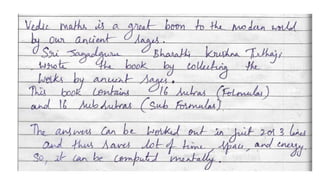 Vedic maths is a great boon to the modern world
by our ancient sages.
Sri Jagadguru Bharathi Krishna Tirthaji
wrote the book by collecting the
works by ancient sages.
This book contains 16 sutras (Folmulas)
and 16 sub sutras (Sub Formulas)
The answers can be worked out in just 2 or 3 lines
and thus saves lot of time, space, and energy.
So, it can be computed mentally.